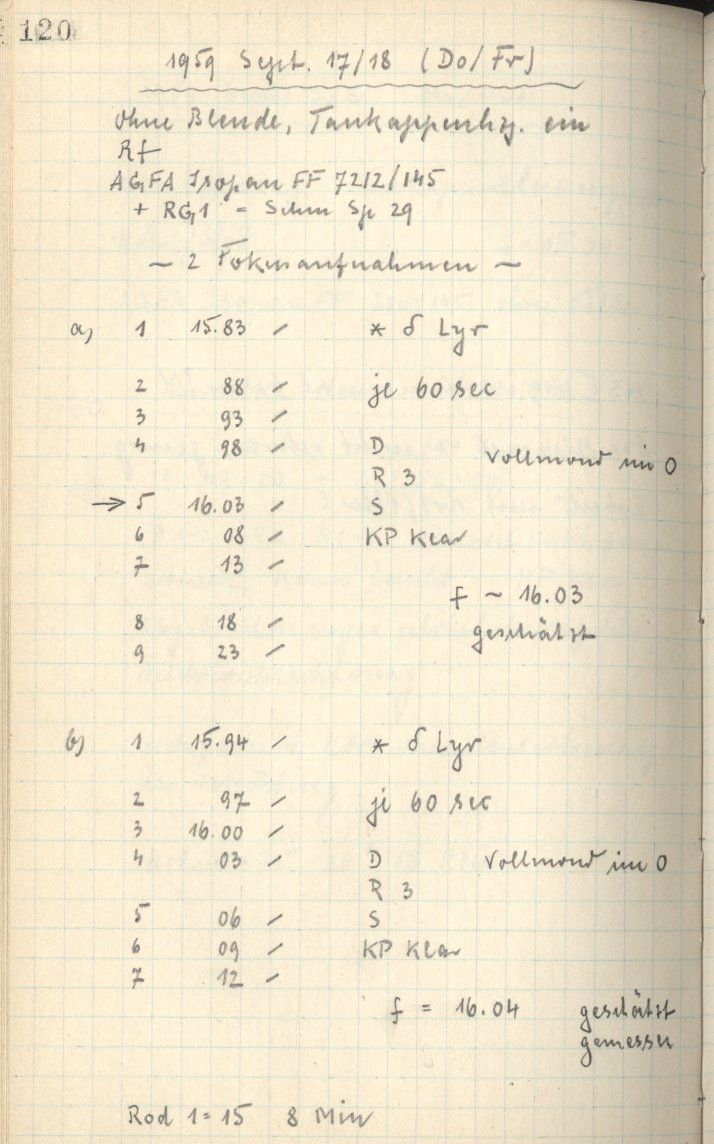 120
1959 Sept. 17/18 (Do/Fr)
Ohne Blende, Taukappenhzg. ein
Rf
AGFA Isopan FF 7212/145
+ RG1 = Schm Sp 29
~ 2 Fokusaufnahmen ~
a) 1 15.83 / * δ Lyr
2 88 / je 60 sec
3 93 /
4 98 / D Vollmond im O
R 3
→ 5 16.03 / S
6 08 / KP Klar
7 13 /
f ~ 16.03
8 18 / geschätzt
9 23 /
b) 1 15.94 / * δ Lyr
2 97 / je 60 sec
3 16.00 /
4 03 / D Vollmond im O
R 3
5 06 / S
6 09 / KP Klar
7 12 /
f = 16.04 geschätzt
gemessen
Rod 1=15 8 Min